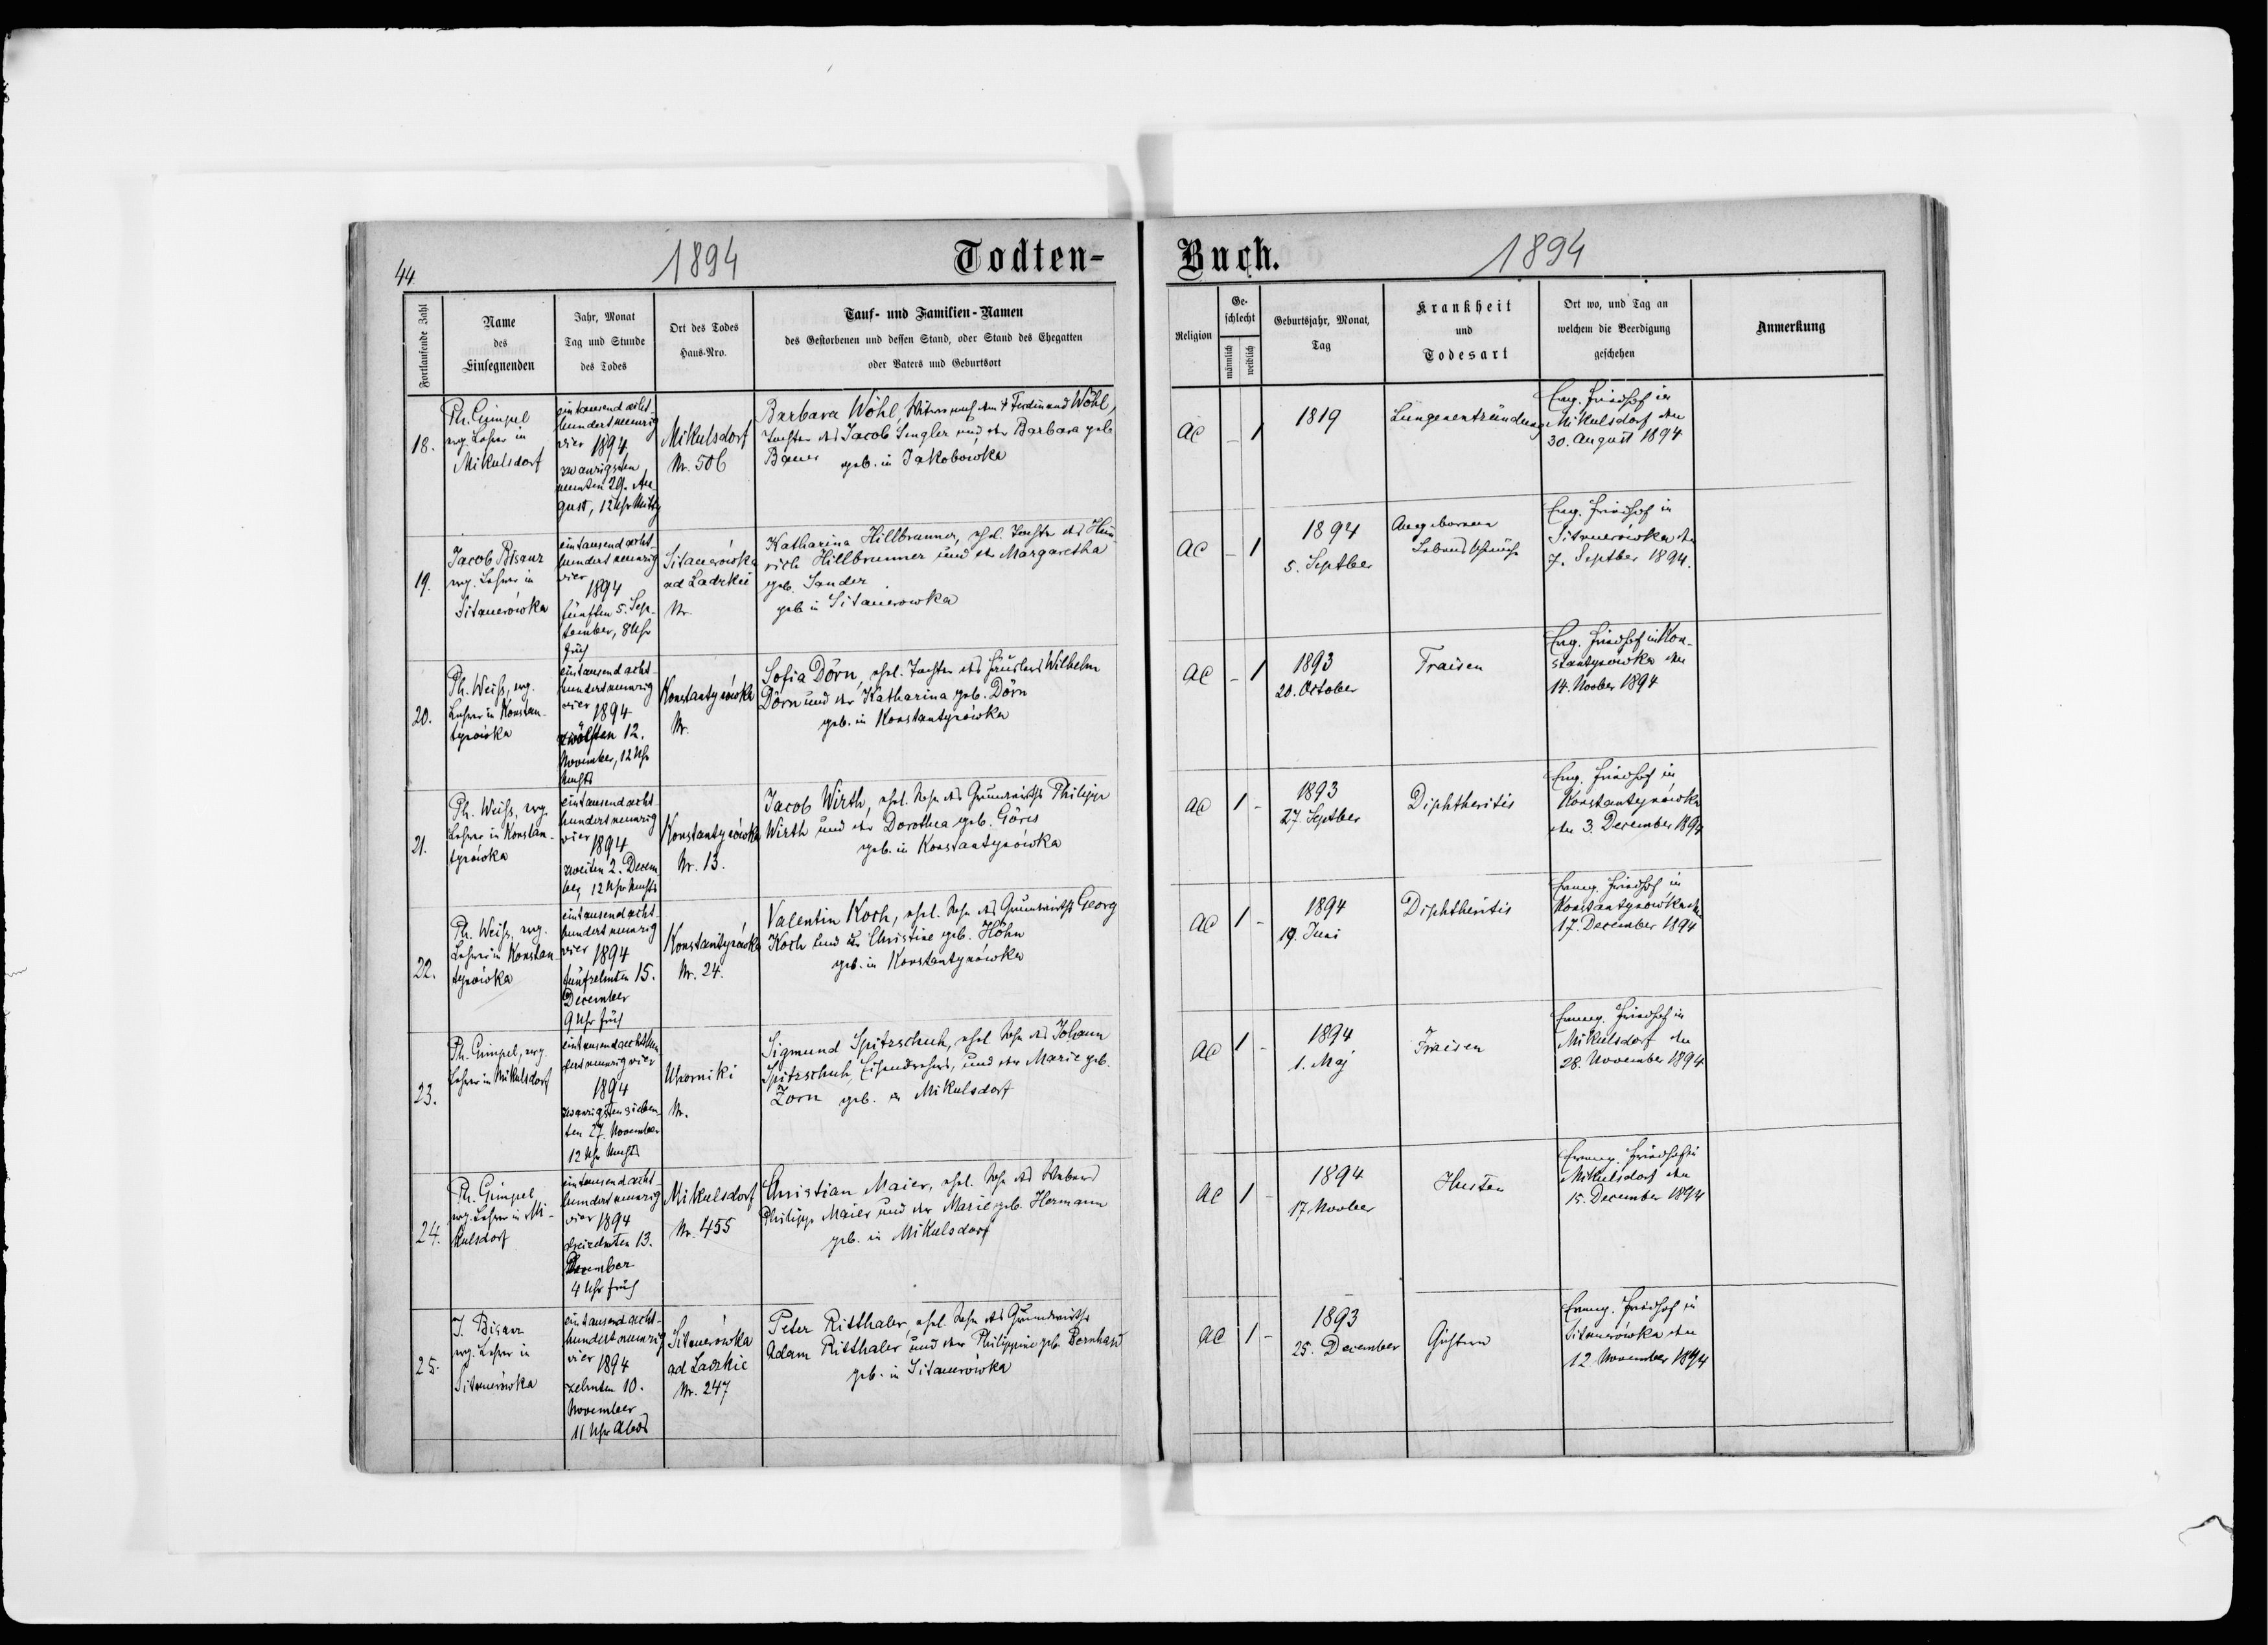 44
1894
Todten-
Buch.
1894
Fortlaufende Zahl
Name
des
Einsegnenden
Jahr, Monat
Tag und Stunde
des Todes
Ort des Todes
Haus-Nro.
Tauf- und Familien-Namen
des Gestorbenen und dessen Stand, oder Stand des Ehegatten
oder Vaters und Geburtsort
Religion
Ge-
schlecht
männlich
weiblich
Geburtsjahr, Monat,
Tag
Krankheit
und
Todesart
Ort wo, und Tag an
welchem die Beerdigung
geschehen
Anmerkung
18.
Ph. Gimpel
evg. Lehrer in
Mikulsdorf
eintausend acht-
hundert neunzig
vier 1894,
zwanzigsten
neunten 29. Au-
gust, 12 Uhr Mittg
Mikulsdorf
Nr. 506
Barbara Wöhl, Witwe nach dem † Ferdinand Wöhl,
Tochter des Jacob Sengler und der Barbara geb
Bauer geb. in Jakobowka
AC
- 1
1819
Lungenentzündung
Evg. Friedhof in
Mikulsdorf den
30. August 1894
19.
Jacob Bisanz
evg. Lehrer in
Sitauerówka
eintausend acht
hundert neunzig
vier
1894
fünften 5. Sep-
tember, 8 Uhr
früh
Sitauerówka
ad Ladzkie
Nr.
Katharina Hillbrunner, ehel. Tochter des Hein-
rich Hillbrunner und der Margaretha
geb. Sander
geb in Sitauerowka
AC
- 1
1894
5. Septber
Angeborene
Lebensschwäche
Evg. Friedhof in
Sitauerówka den
7. Septber 1894.
20.
Ph. Weiß, evg.
Lehrer in Konstan-
tynówka
eintausend acht-
hundert neunzig
vier 1894
zwölften 12.
November, 12 Uhr
Nachts
Konstantynówka
Nr.
Sofia Dörn, ehel. Tochter des Häuslers Wilhelm
Dörn und der Katharina geb. Dörn
geb. in Konstantynówka
AC
- 1
1893
20. October
Fraisen
Evg. Friedhof in Kon-
stantynówka den
14. Novber 1894
21.
Ph. Weiß, evg.
Lehrer in Konstan-
tynówka
eintausend acht-
hundert neunzig
vier 1894
zweiten 2. Decem
ber, 12 Uhr Nachts
Konstantynówka
Nr. 13.
Jacob Wirth, ehel. Sohn des Grundwirths Philipp
Wirth und der Dorothea geb. Göres
geb. in Konstantynówka
AC
1 -
1893
27. Septber
Diphtheritis
Evg. Friedhof in
Konstantynówka
den 3. December 1894
22.
Ph. Weiß, evg.
Lehrer in Konstan-
tynówka
eintausend acht-
hundert neunzig
vier 1894
fünfzehnten 15.
December
9 Uhr früh
Konstantynówka
Nr. 24.
Valentin Koch, ehel. Sohn des Grundwirths Georg
Koch und der Christine geb. Höhn
geb. in Konstantynówka
AC
1 -
1894
19. Juni
Diphtheritis
Evang. Friedhof in
Konstantynówka den
17. December 1894
23.
Ph. Gimpel, evg.
Lehrer in Mikulsdorf
eintausend achthun
dert neunzig vier
1894
zwanzigsten sieben
ten 27. November
12 Uhr Nachts
Uhorniki
Nr.
Sigmund Spitzschuh, ehel. Sohn des Johann
Spitzschuh, Eisendrehers, und der Marie geb.
Zorn geb. in Mikulsdorf
AC
1 -
1894
1. Maj
Fraisen
Evang. Friedhof in
Mikulsdorf den
28. November 1894
24.
Ph. Gimpel,
evg. Lehrer in Mi-
kulsdorf
eintausend acht-
hundert neunzig
vier 1894
dreizehnten 13.
December
4 Uhr früh
Mikulsdorf
Nr. 455
Christian Maier, ehel. Sohn des Webers
Philipp Maier und der Marie geb. Hermann
geb. in Mikulsdorf
AC
1 -
1894
17 Novber
Husten
Evang. Friedhof in
Mikulsdorf den
15. December 1894
25.
J. Bisanz
evg. Lehrer in
Sitauerówka
eintausend acht-
hundert neunzig
vier 1894
zehnten 10.
November
11 Uhr Abds
Sitauerówka
ad Ladzkie
Nr. 247
Peter Ritthaler, ehel. Sohn des Grundwirths
Adam Ritthaler und der Philippine geb. Bernhard
geb. in Sitauerówka
AC
1 -
1893
25. December
Evang. Friedhof in
Sitauerówka den
12 November 1894